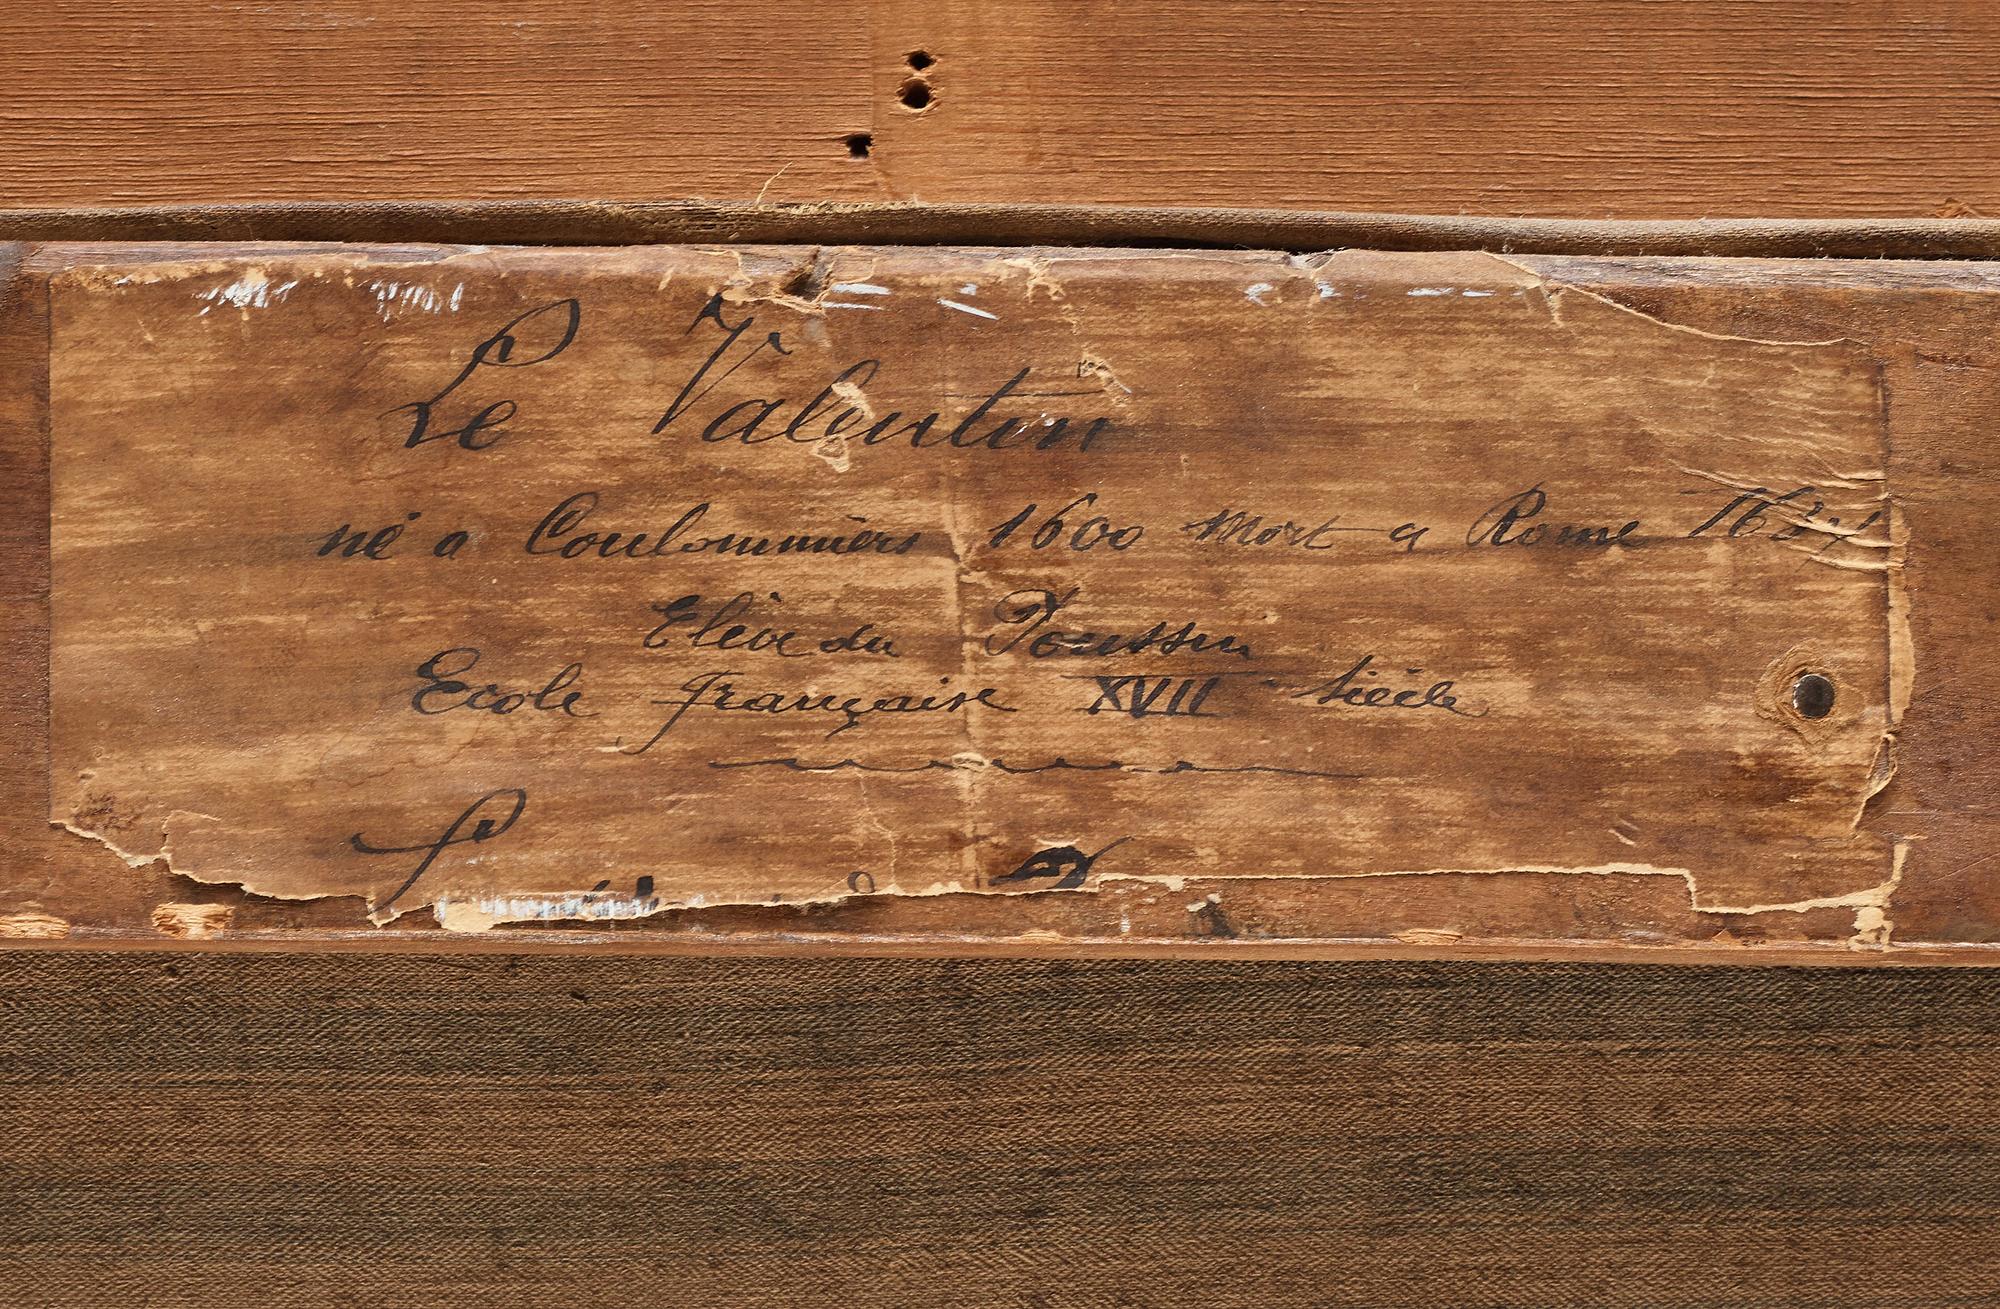 Le Valentin
né a Coulommiers 1600 Mort a Rome 1634
Elève du Poussin
Ecole française XVII siècle